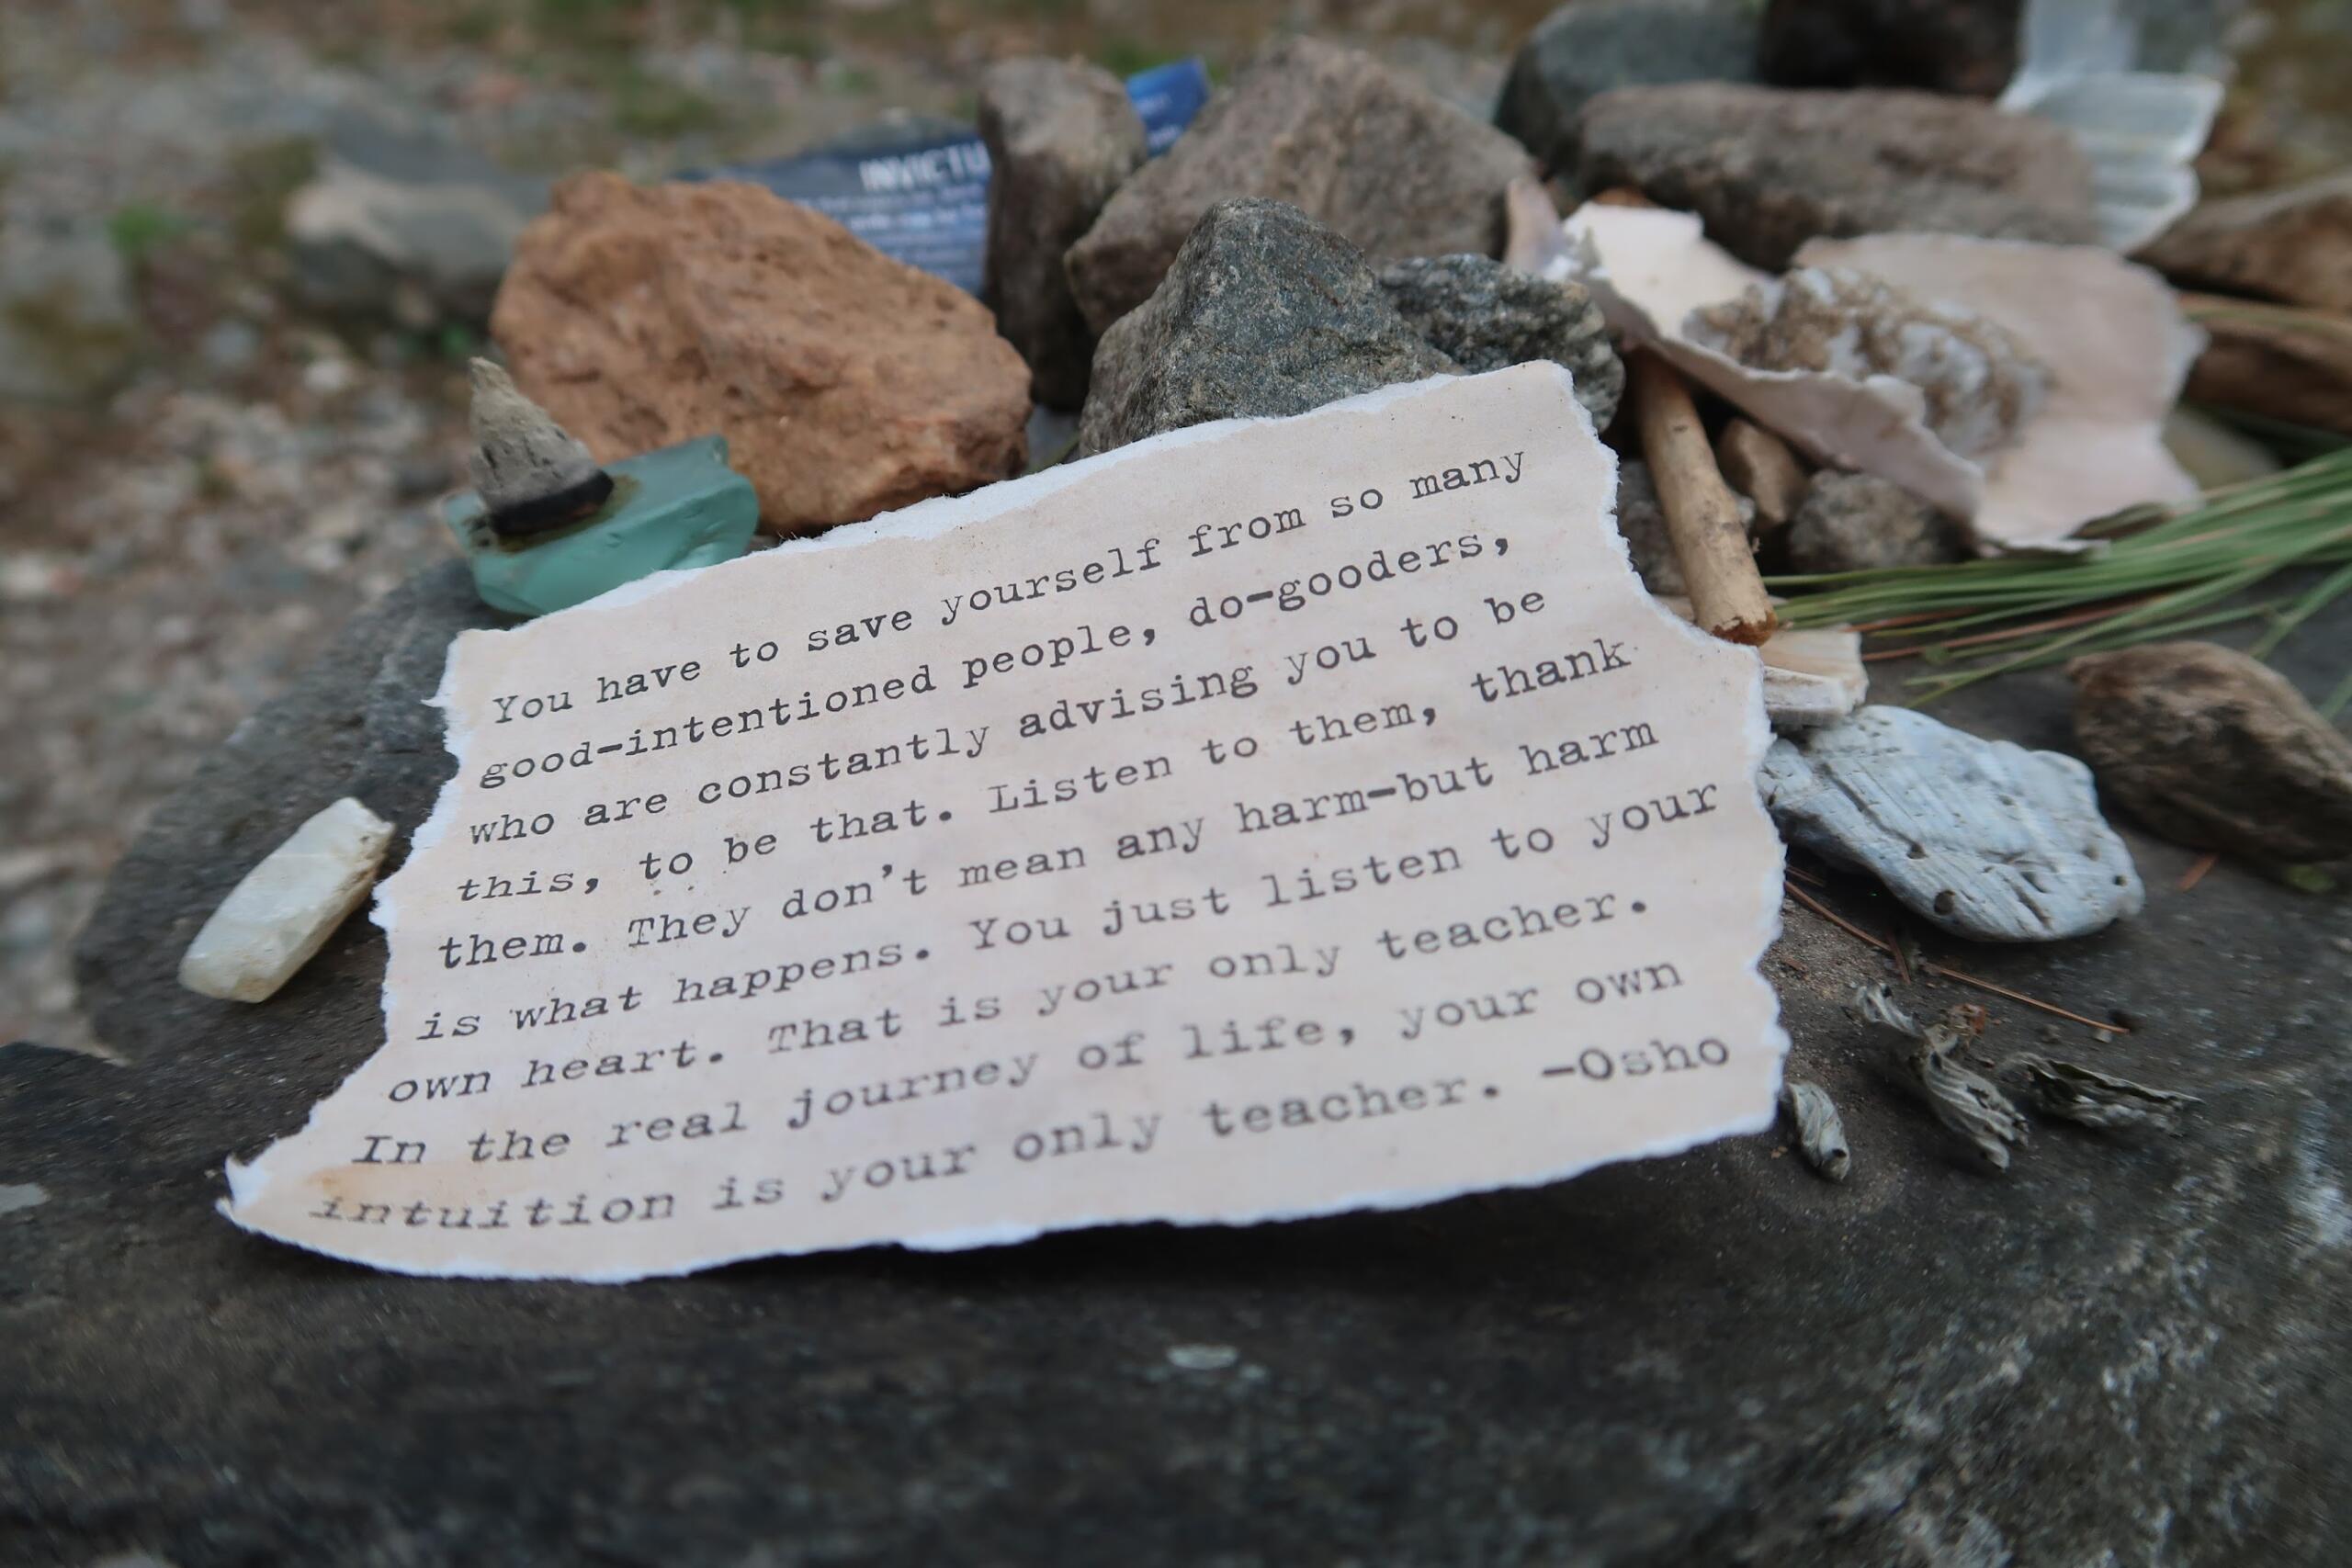 INVICTU
You have to save yourself from so many
good-intentioned people, do-gooders,
who are constantly advising you to be
this, to be that. Listen to them, thank
them. They don't mean any harm-but harm
is what happens. You just listen to your
own heart. That is your only teacher.
In the real journey of life, your own
intuition is your only teacher. -Osho